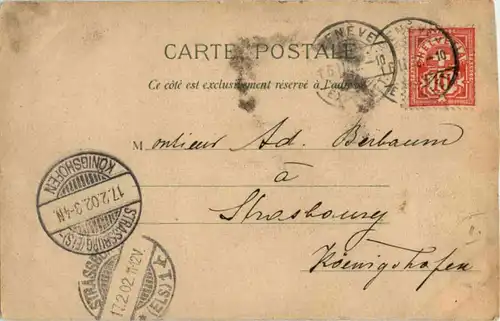 CARTE POSTALE
Ce côté est exclusivement réservé à l'adresse
GENÈVE
HELVETIA
10
Monsieur Ad. Berbaum
à
Strasbourg
Koenigshofen
KÖNIGSHOFEN
17.2.02.3-4N.
STRASSBURG (ELS)
STRASSBURG
17.2.02.11-12V.
* (ELS) 1 r